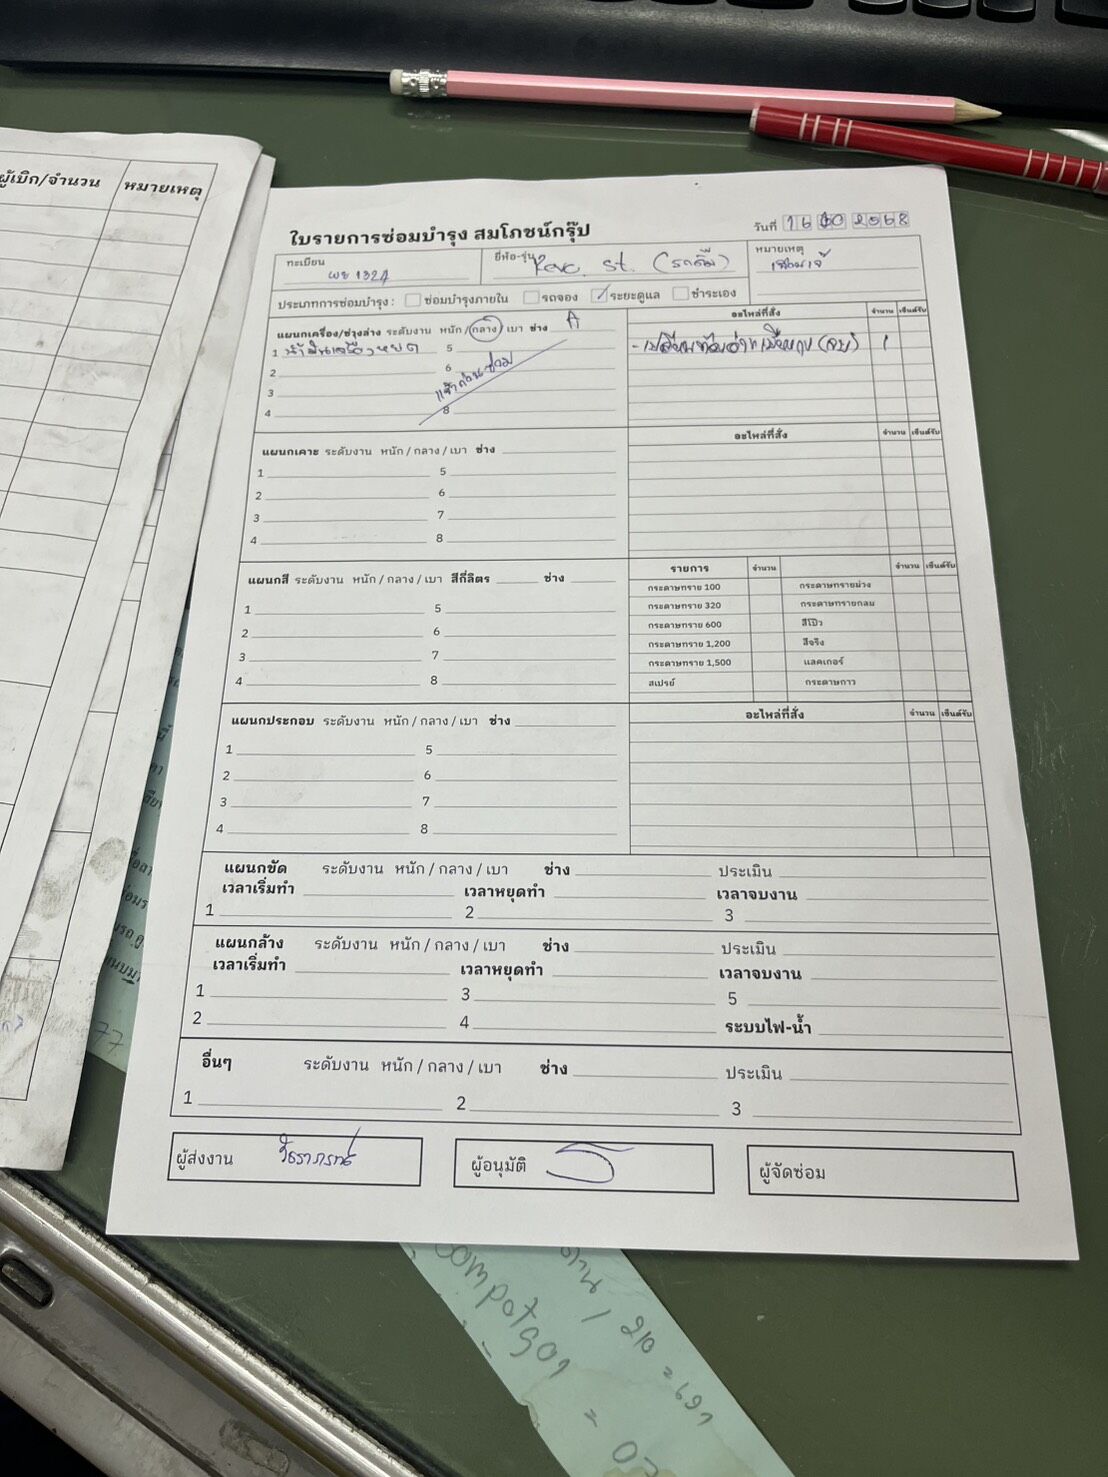 ผู้เบิก/จำนวน หมายเหตุ
ใบรายการซ่อมบำรุง สมโภชน์กรุ๊ป
วันที่ 16 10 2568
ทะเบียน
ยี่ห้อ-รุ่น Revo St.
หมายเหตุ
ประเภทการซ่อมบำรุง : ซ่อมบำรุงภายใน รถจอง ระยะดูแล ชำระเอง
แผนกเครื่อง/ช่วงล่าง ระดับงาน หนัก / กลาง / เบา ช่าง A
อะไหล่ที่สั่ง จำนวน เซ็นต์รับ
1 น้ำมันเครื่องหยด 5
2 6
3
4 8
แจ้งก่อนซ่อม
1
แผนกเคาะ ระดับงาน หนัก / กลาง / เบา ช่าง
อะไหล่ที่สั่ง จำนวน เซ็นต์รับ
1 5
2 6
3 7
4 8
แผนกสี ระดับงาน หนัก / กลาง / เบา สีกี่ลิตร ช่าง
รายการ จำนวน จำนวน เซ็นต์รับ
กระดาษทราย 100 กระดาษทรายม่วง
กระดาษทราย 320 กระดาษทรายกลม
กระดาษทราย 600 สีโป๊ว
กระดาษทราย 1,200 สีจริง
กระดาษทราย 1,500 แลคเกอร์
สเปรย์ กระดาษกาว
1 5
2 6
3 7
4 8
แผนกประกอบ ระดับงาน หนัก / กลาง / เบา ช่าง
อะไหล่ที่สั่ง จำนวน เซ็นต์รับ
1 5
2 6
3 7
4 8
แผนกขัด ระดับงาน หนัก / กลาง / เบา ช่าง ประเมิน
เวลาเริ่มทำ เวลาหยุดทำ เวลาจบงาน
1 2 3
แผนกล้าง ระดับงาน หนัก / กลาง / เบา ช่าง ประเมิน
เวลาเริ่มทำ เวลาหยุดทำ เวลาจบงาน
1 3 5
2 4 ระบบไฟ-น้ำ
อื่นๆ ระดับงาน หนัก / กลาง / เบา ช่าง ประเมิน
1 2 3
ผู้ส่งงาน
ผู้อนุมัติ
ผู้จัดซ่อม
77